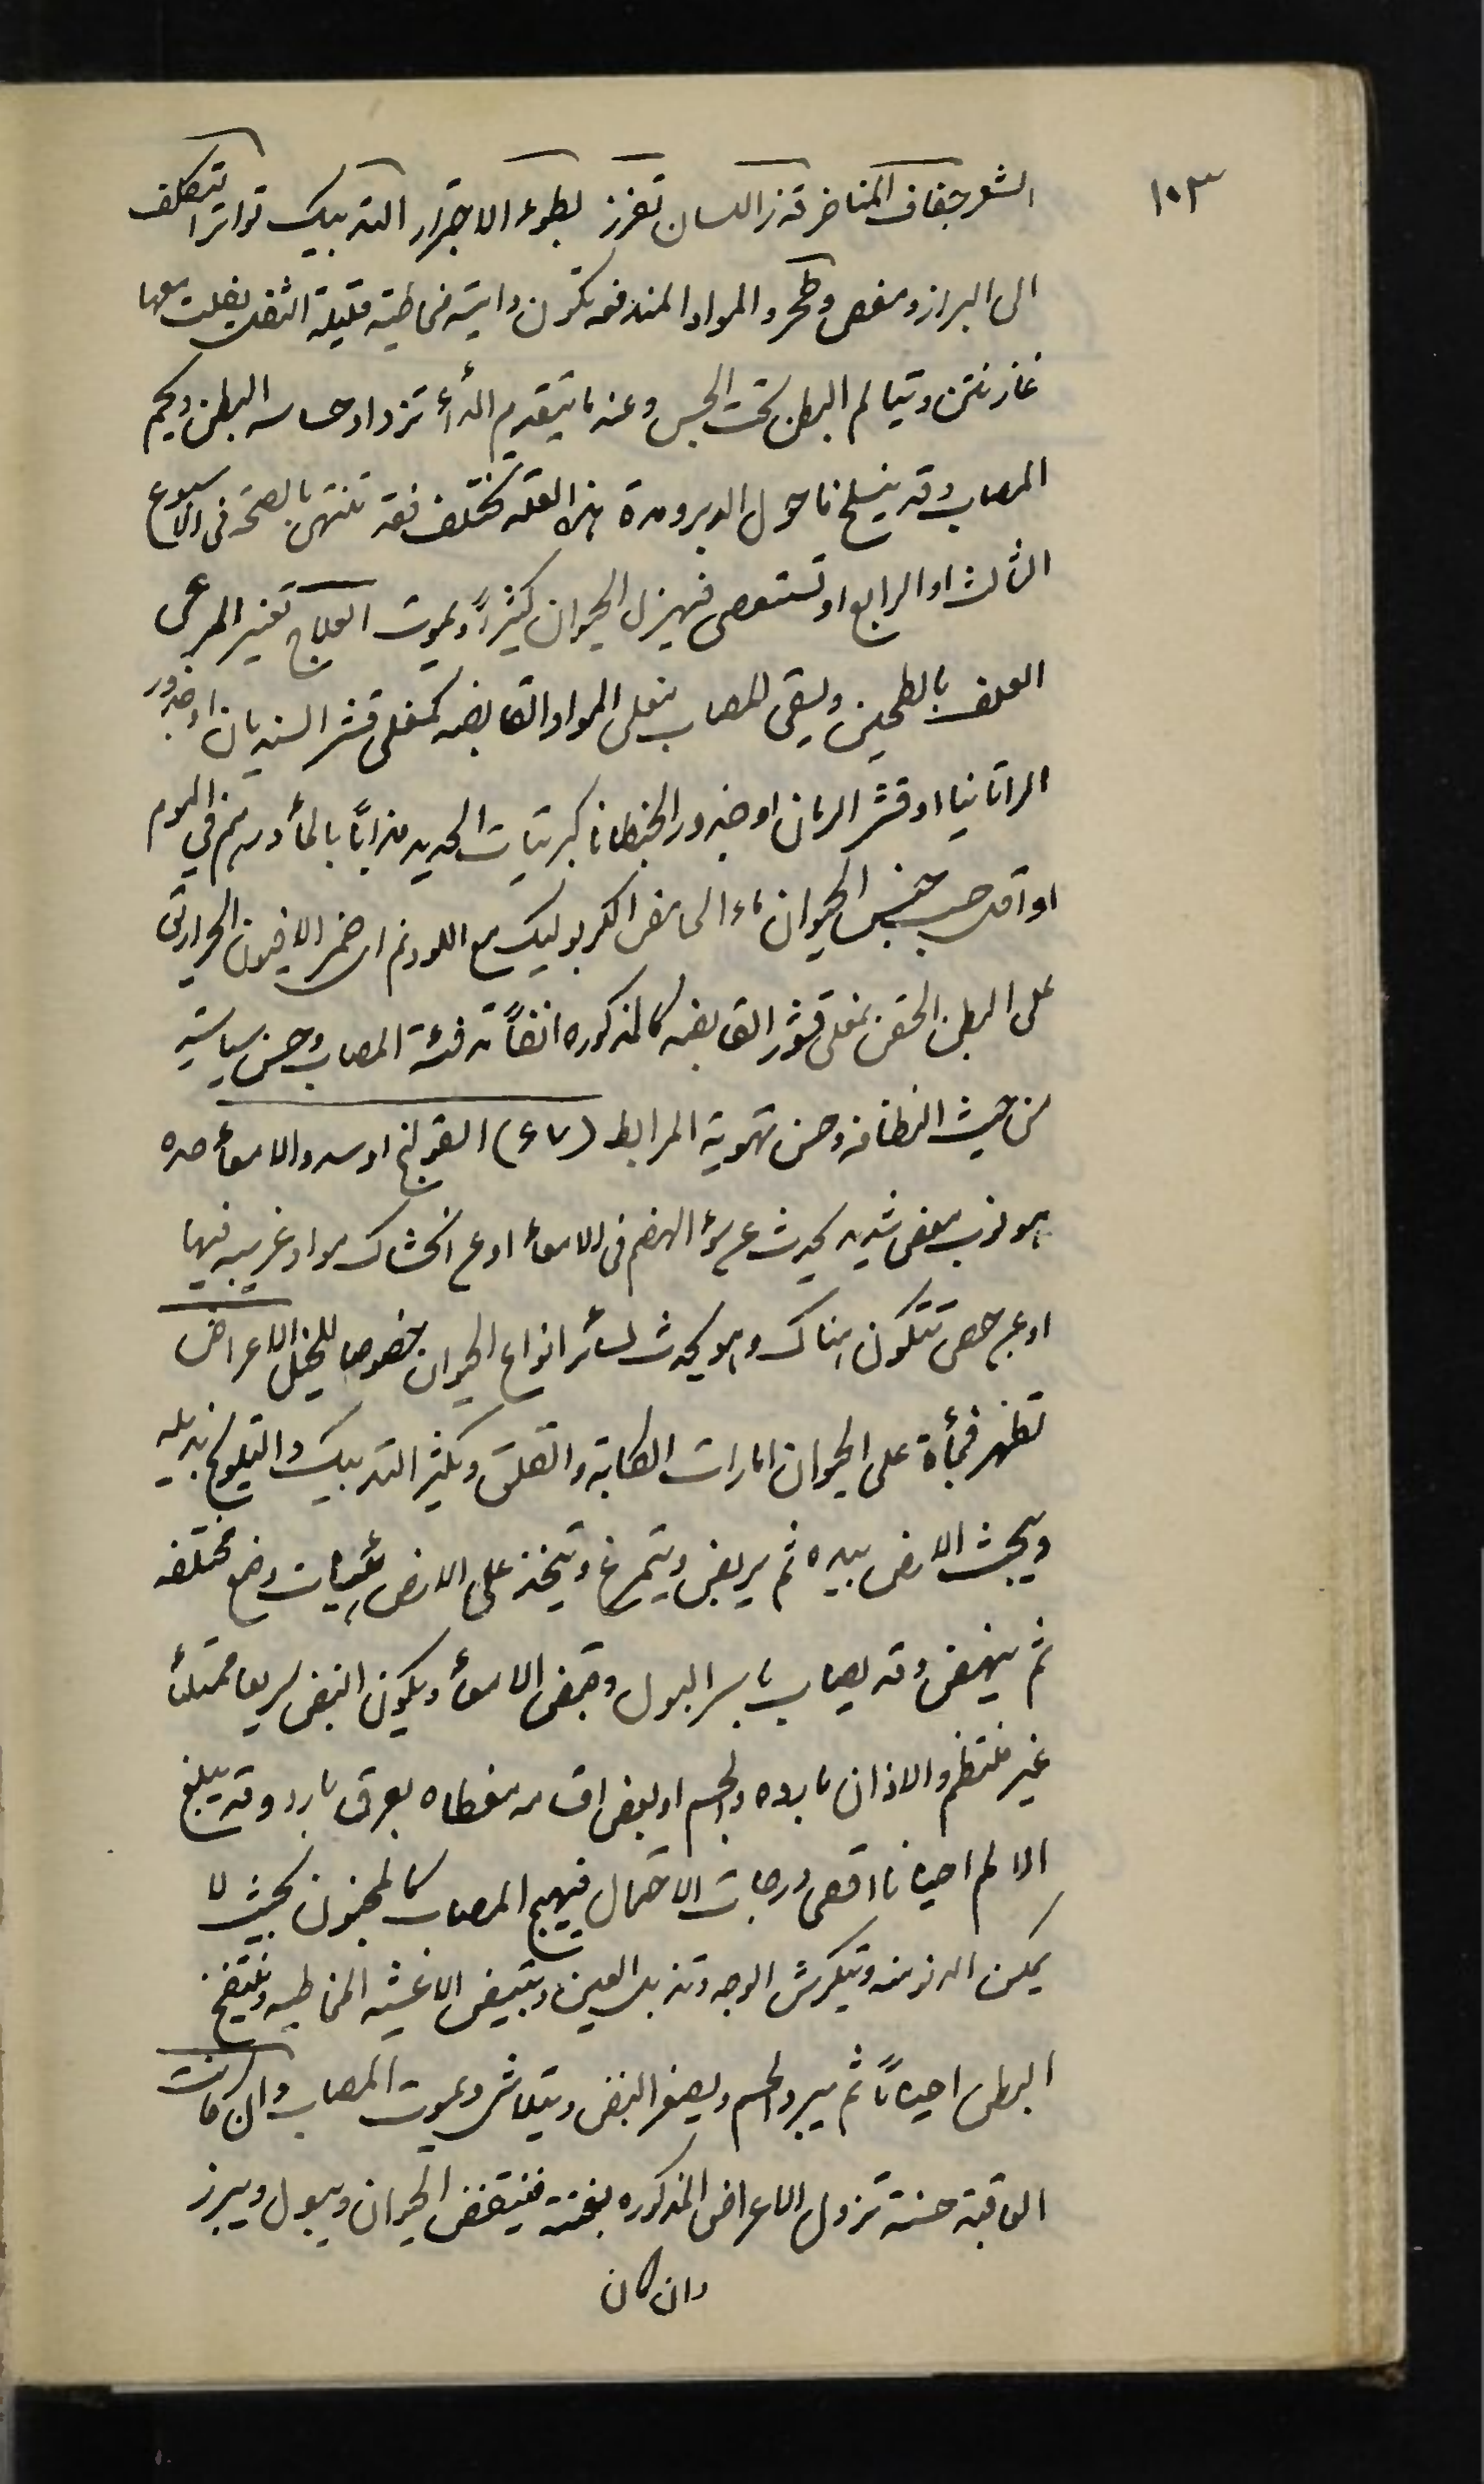 ١٠٣
الشعر جفاف المناخر قذر اللسان تفزز بطوء الاجترار التدبيك تواتر التكلف
الى البراز ومغص وطحر والمواد المندفعه تكون دايبه مخاطيه قليلة الثفل يفلت معها
غاز نتن ويتالم البطن تحت الجس وعند ما يتقدم الدأء تزداد حساسه البطن ويحم
المصاب وقد ينسلخ ما حول الدبر ومدة هذا العله تختلف فقد تنتهى بالصحة فى الاسبوع
الثالث او الرابع او تستعصى فيهزل الحيوان كثيراً ويموت العلاج تغير المرعى
العلف بالطحين ويسقى المصاب مغلى المواد القابضه كمغلى قشر السنديان او جذور
الراتانيا او قشر الرمان او جذور الجنطانا كبريتات الحديد مذاباً بالمأ درهم في اليوم
او اقل حسب جنس الحيوان ماء الحامض الكربوليك مع اللودنم اى خمر الافيون الحراريق
على البطن الحقن بمغلى قشور القابضه كالمذكوره انفاً تدفئة المصاب وحسن سياسته
من حيث النظافه وحسن تهوية المرابط (٤٧) القولنج او سدد الامعأ حده
هو نوب مغص شديد يحدث عن سؤ الهضم فى الامعأ او عن انحشاك مواد غريبه فيها
او عن حصى تتكون هناك وهو يحدث لسأئر انواع الحيوان خصوصا للخيل الاعراض
تظهر فجأة على الحيوان امارات الكابة والقلق ويكثر التدبيك والتلويح بذيله
ويبحث الارض بيده ثم يربض ويتمرغ ويتخذ على الارض هيئات وضع مختلفه
ثم ينهض وقد يصاب باسر البول وقبض الامعأ ويكون النبض سريعا ممتلئأ
غير منتظم والاذان بارده والجسم او بعض اقسامه مغطاه بعرق بارد وقد يبلغ
الالم احيانا اقصى درجات الاحتمال فيهيج المصاب كالمجنون بحيث لا
يمكن الدنو منه ويتكرش الوجه وتذبل العين وتبيض الاغشيه المخاطيه وينتفخ
البطن احياناً ثم يبرد الجسم ويصغر النبض ويتلاشى ويموت المصاب وان كانت
العاقبة حسنة تزول الاعراض المذكوره بغتة فينتفض الحيوان ويبول ويبرز
وان كان